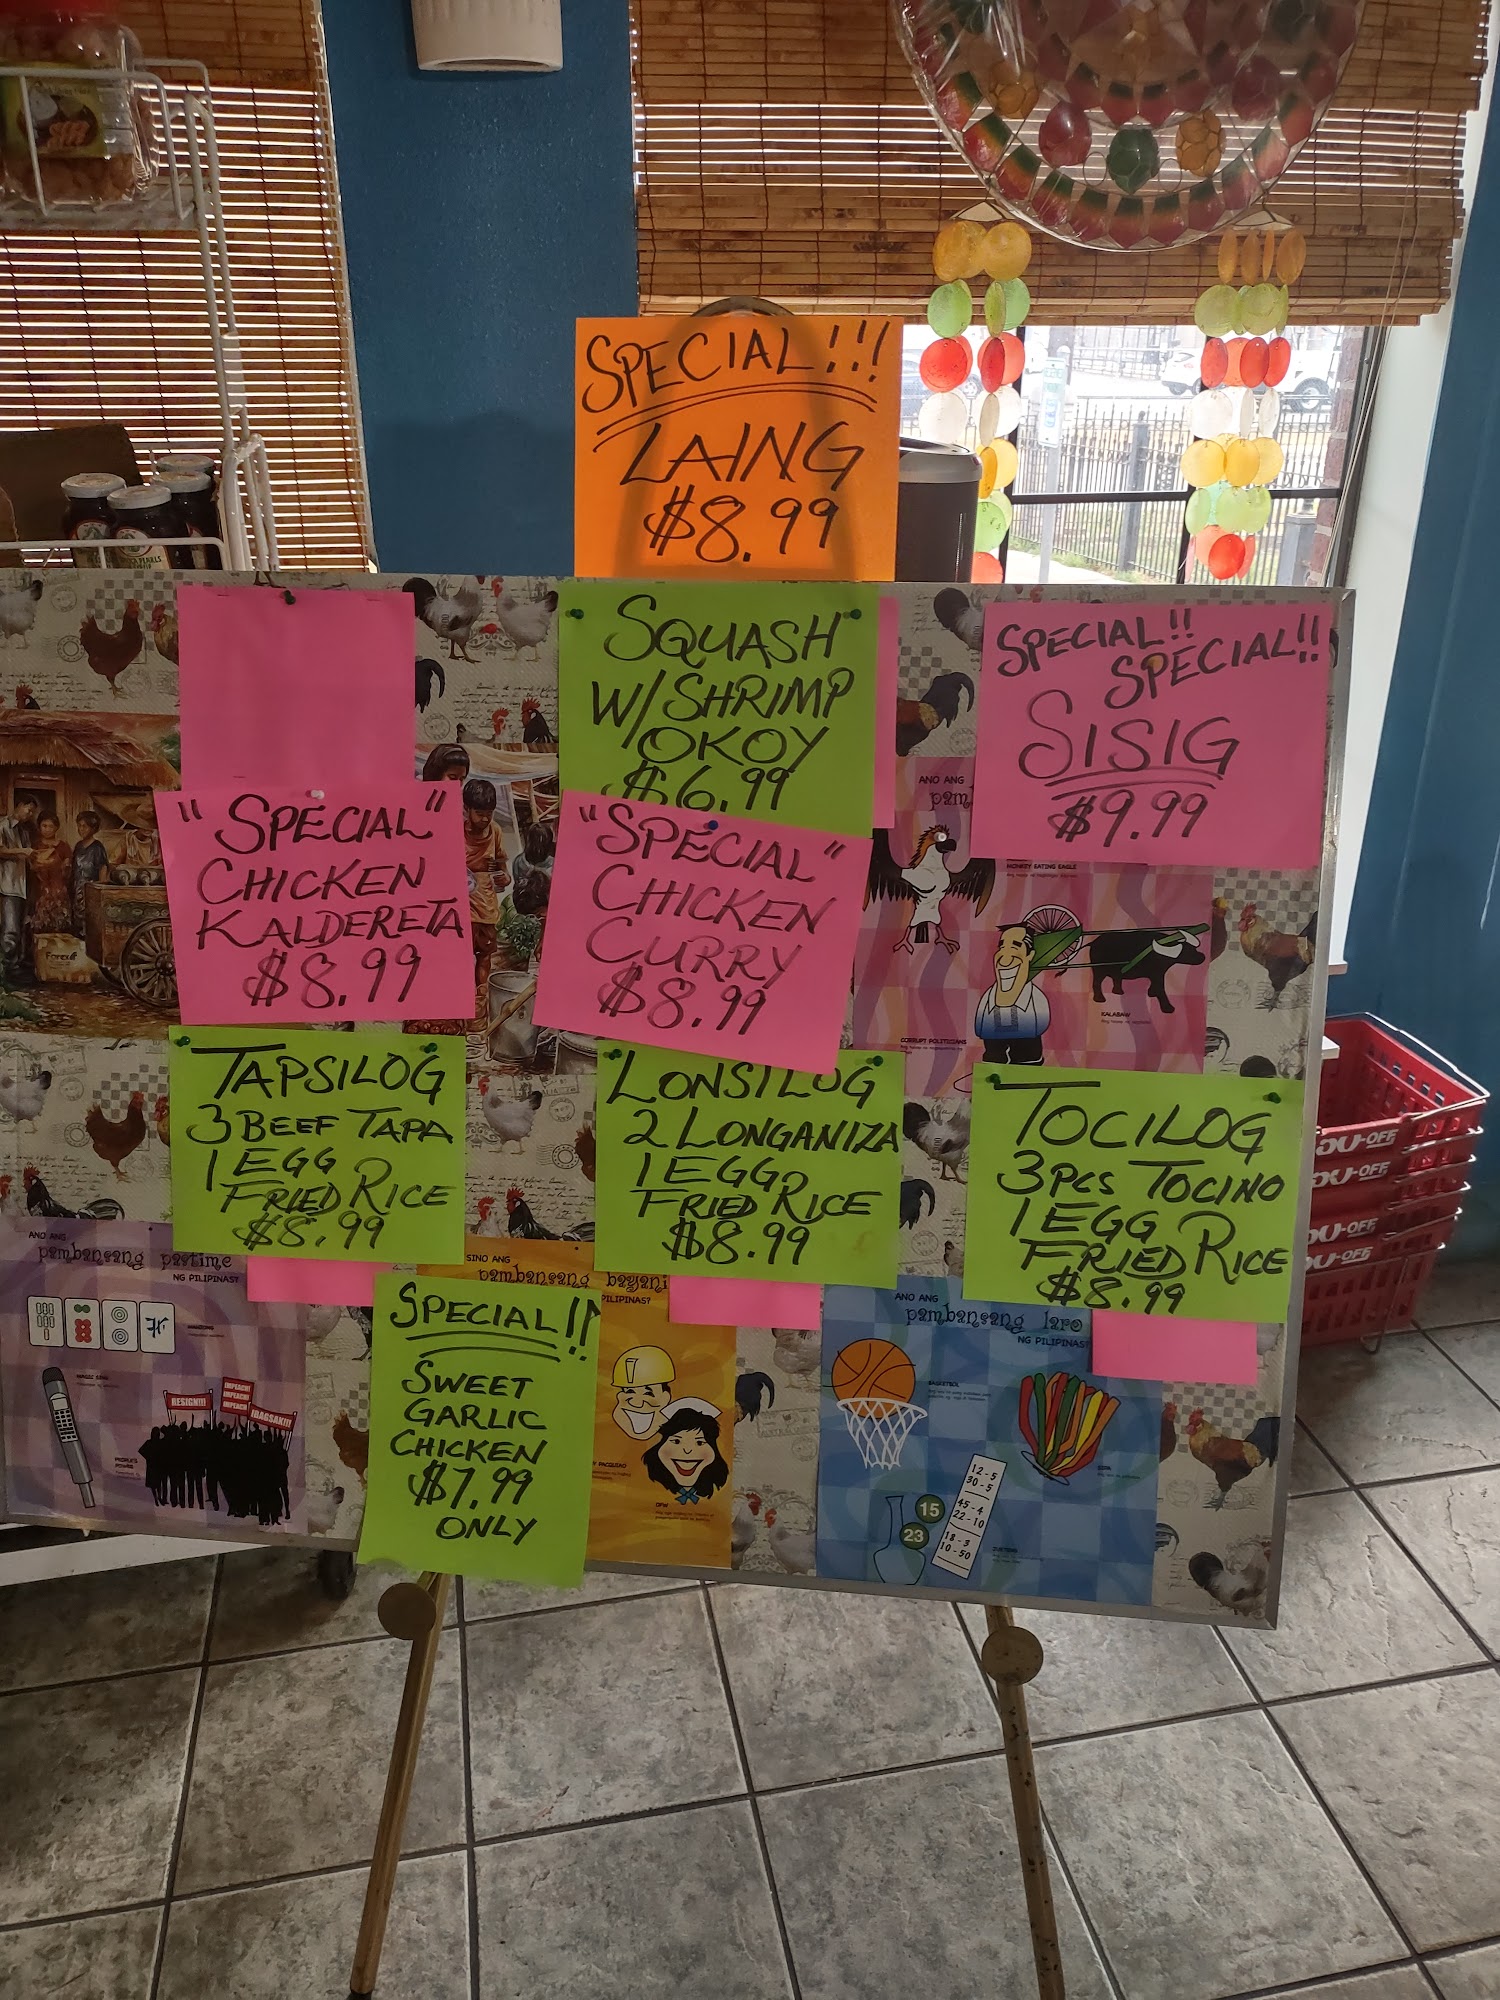 SPECIAL!!!
LAING
$8.99
SQUASH
W/SHRIMP
OKOY
$6.99
SPECIAL!!
SPECIAL!!
SISIG
$9.99
"SPECIAL"
CHICKEN
KALDERETA
$8.99
"SPECIAL"
CHICKEN
CURRY
$8.99
ANO ANG
MONKEY EATING EAGLE
CORRUPT POLITICIANS
KALABAW
TAPSILOG
3 BEEF TAPA
1 EGG
FRIED RICE
$8.99
LONSILOG
2 LONGANIZA
1 EGG
FRIED RICE
$8.99
TOCILOG
3 PCS TOCINO
1 EGG
FRIED RICE
$8.99
SPECIAL!!
SWEET
GARLIC
CHICKEN
$7.99
ONLY
ANO ANG
pambansang pastime
NG PILIPINAS?
MAGIC SING
PEOPLE'S
POWER
RESIGN!!!
IMPEACH!
IMPEACH!
IBAGSAK!!!
SINO ANG
pambansang bayani
PILIPINAS?
OFW
ANO ANG
pambansang laro
NG PILIPINAS?
BASKETBOL
JUETENG
15
23
12-5
30-5
45-4
22-10
18-3
10-50
Forex
OU-OFF
OU-OFF
OU-OFF
OU-OFF